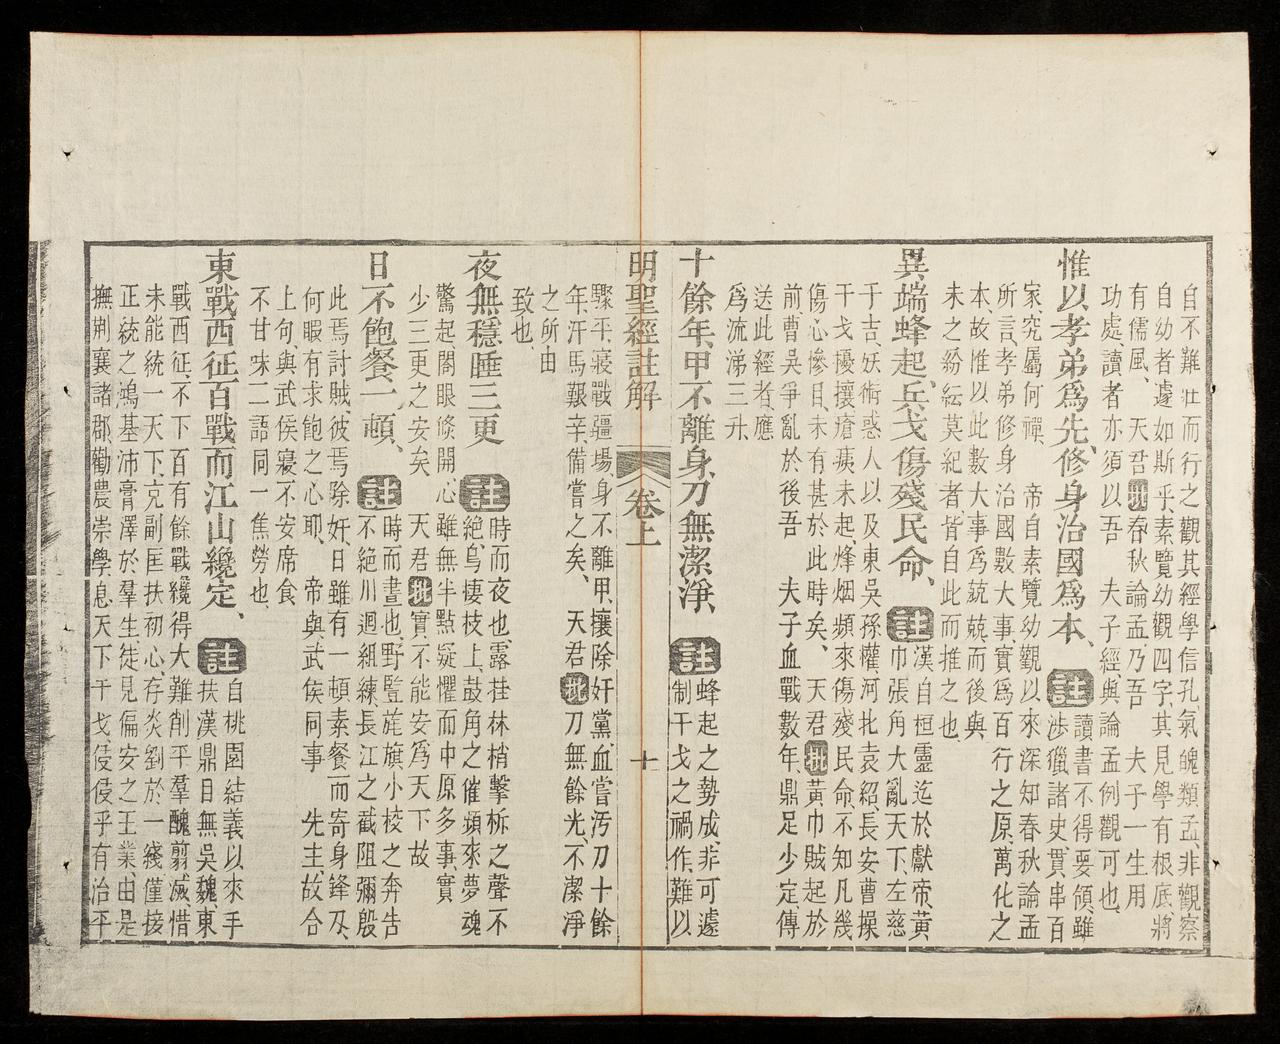 自不難壯而行之觀其經學信孔氣魄類孟非觀察
自幼者遽如斯乎素覽幼觀四字其見學有根底將
有儒風、天君批春秋論孟乃吾　夫子一生用
功處讀者亦須以吾　夫子經與論孟例觀可也、
惟以孝弟爲先、修身治國爲本、註讀書不得要領雖
涉獵諸史貫串百
家、究屬何裨、　帝自素覽幼觀以來深知春秋論孟
所言、孝弟修身治國數大事、實爲百行之原、萬化之
本、故惟以此數大事爲兢兢、而後與
未之紛紜莫紀者、皆自此而推之也、
異端蜂起、兵戈傷殘民命、註漢自桓靈迄於獻帝、黃
巾張角大亂天下、左慈
于吉、妖術惑人以及東吳孫權河北袁紹、長安曹操
干戈擾攘瘡痍未起、烽烟頻來傷殘民命、不知凡幾
傷心慘目、未有甚於此時矣、　天君批黃巾賊起於
前、曹吳爭亂於後吾　夫子血戰數年、鼎足少定傳
送此經者、應
爲流涕三升、
十餘年、甲不離身、刀無潔淨、註蜂起之勢成、非可遽
制干戈之禍作、難以
明聖經註解　卷上　十
驟平、寢戰疆場、身不離甲、攘除奸黨、血嘗汚刀十餘
年、汗馬艱辛、備嘗之矣、　天君批刀無餘光、不潔淨
之所由
致也、
夜無穩睡三更註時而夜也、露挂林梢擊柝之聲不
絶、烏棲枝上、鼓角之催頻來、夢魂
驚起、閤眼倏開、心雖無半點疑懼而中原多事、實
少三更之安矣　天君批實不能安爲天下故
日不飽餐一頓、註時而晝也、野豎旌旗小校之奔告
不絶川迴組練、長江之截阻彌殷
此焉討賊、彼焉除奸、日雖有一頓素餐而寄身鋒刃、
何暇有求飽之心耶、　帝與武侯同事　先主故合
上句、與武侯寢不安席食
不甘味二語同一焦勞也、
東戰西征百戰而江山纔定、註自桃園結義以來手
扶漢鼎目無吳魏、東
戰西征、不下百有餘戰纔得大難削平羣醜翦滅、惜
未能統一天下、克副匡扶初心、存炎劉於一綫僅接
正統之鴻基沛膏澤於羣生、徒見偏安之王業、由是
撫荆襄諸郡、勸農崇學、息天下干戈、侵侵乎有治平